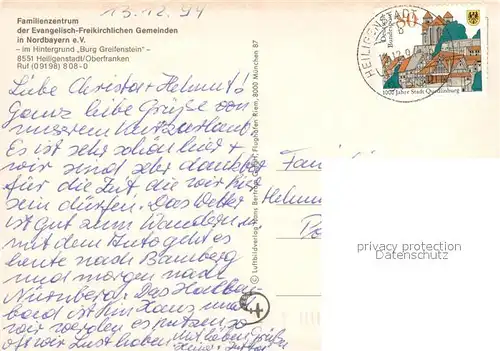 13.12.94
Familienzentrum
der Evangelisch-Freikirchlichen Gemeinden
in Nordbayern e.V.
– im Hintergrund „Burg Greifenstein" –
8551 Heiligenstadt/Oberfranken
Ruf (09198) 808-0
Liebe Christa + Helmut!
Ganz liebe Grüße von
unserem Kurzurlaub.
Es ist sehr schön hier +
wir sind sehr dankbar
für die Zeit die wir hier
sein dürfen. Das Wetter
ist gut zum Wandern u.
mit dem Auto geht es
heute nach Bamberg
und morgen nach
Nürnberg. Das Hallen-
bad ist im Haus und
wir werden es nutzen so
oft wir Lust haben. Mit lieben Grüßen
© Luftbildverlag Hans Bertram GmbH, Flughafen Riem, 8000 München 87
HEILIGENSTADT
80
Deutsche
Bundespost
1000 Jahre Stadt Quedlinburg
Fam
Helmu
privacy protection
service